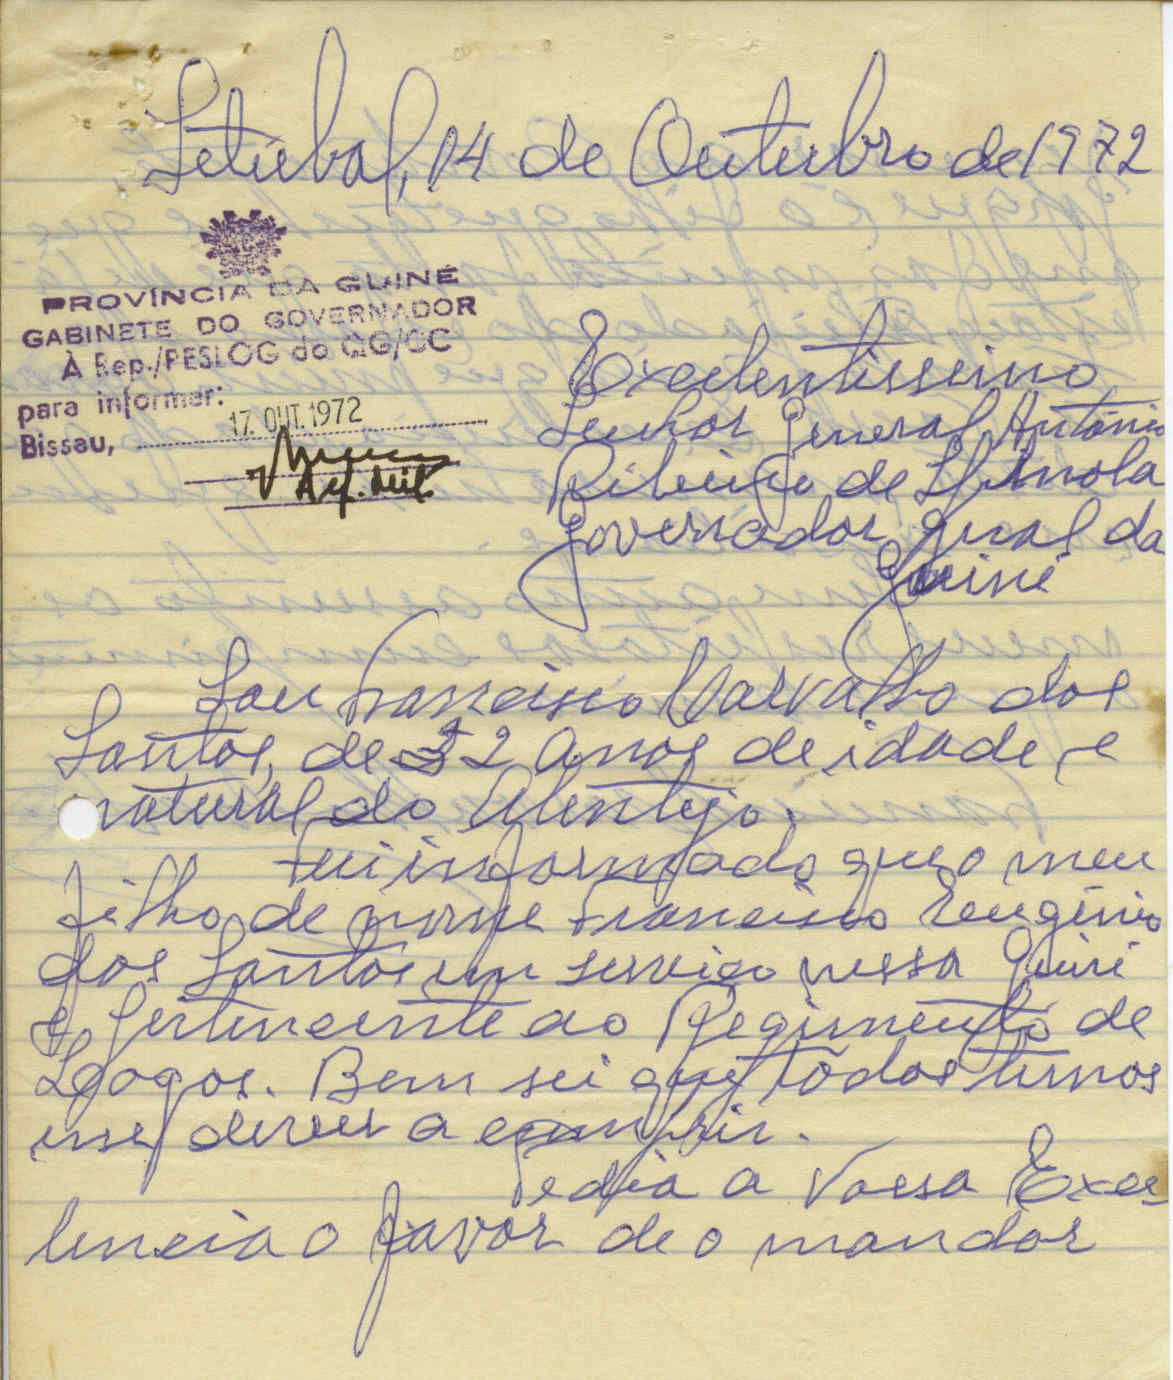 Setubal, 14 de Outubro de 1972
PROVÍNCIA DA GUINÉ
GABINETE DO GOVERNADOR
À Rep./PESLOG do QG/CC
para informar:
Bissau, 17. OUT. 1972
Excelentissimo
Senhor General António
Ribeiro de Spinola
Governador geral da
Guiné
Sou Francisco Carvalho dos
Santos, de 52 anos de idade e
natural do Alentejo.
Fui informado que o meu
filho de nome Francisco Eugénio
dos Santos em serviço nessa Guiné
e pertencente ao Regimento de
Lagos. Bem sei que todos temos
esse dever a cumprir.
Pedia a Vossa Exce
lencia o favor de o mandar